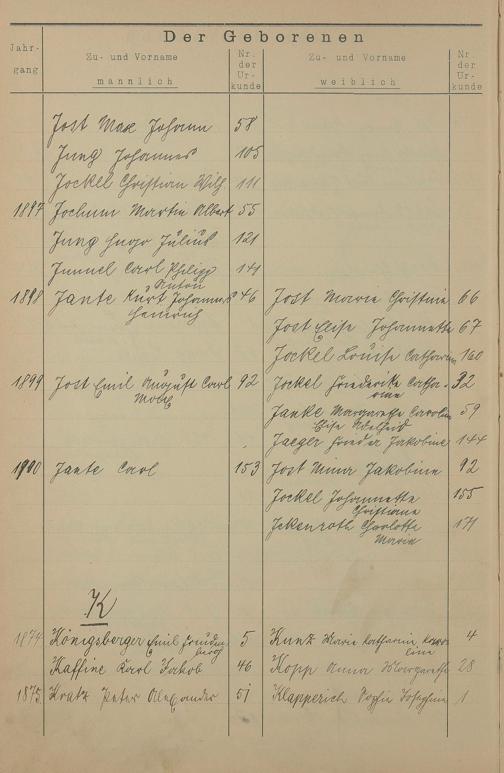 Der Geborenen
Jahr-
gang
Zu- und Vorname
männlich
Nr.
der
Ur-
kunde
Zu- und Vorname
weiblich
Nr.
der
Ur-
kunde
Jost Max Johann 58
Jung Johannes 105
Jockel Christian Wilh. 111
1897 Jochum Martin Albert 55
Jung Hugo Julius 121
Carl Philipp 141
Anton
1898 Jante Kurt Johannes 46 Jost Marie Christine 66
Heinrich
Jost Elise Johannette 67
Jockel Louise Catharina 160
1899 Jost Emil August Carl 92 Jockel Friederike Catha- 32
rine
Janke Margarethe Caroline 59
Elise Adelheid
Jaeger Jakobine 144
1900 Jante Carl 153 Jost Minna Jakobine 92
Jockel Johannette 155
Christiane
Jckenroth Charlotte 171
Marie
K
1874 Königsberger Emil 5 Kunz Marie Katharin. Karo- 4
line
Kaffine Karl Jakob 46 Kopp Anna Margarethe 28
1875 Kratz Peter Alexander 51 Klapperich Sophie Josephine 1